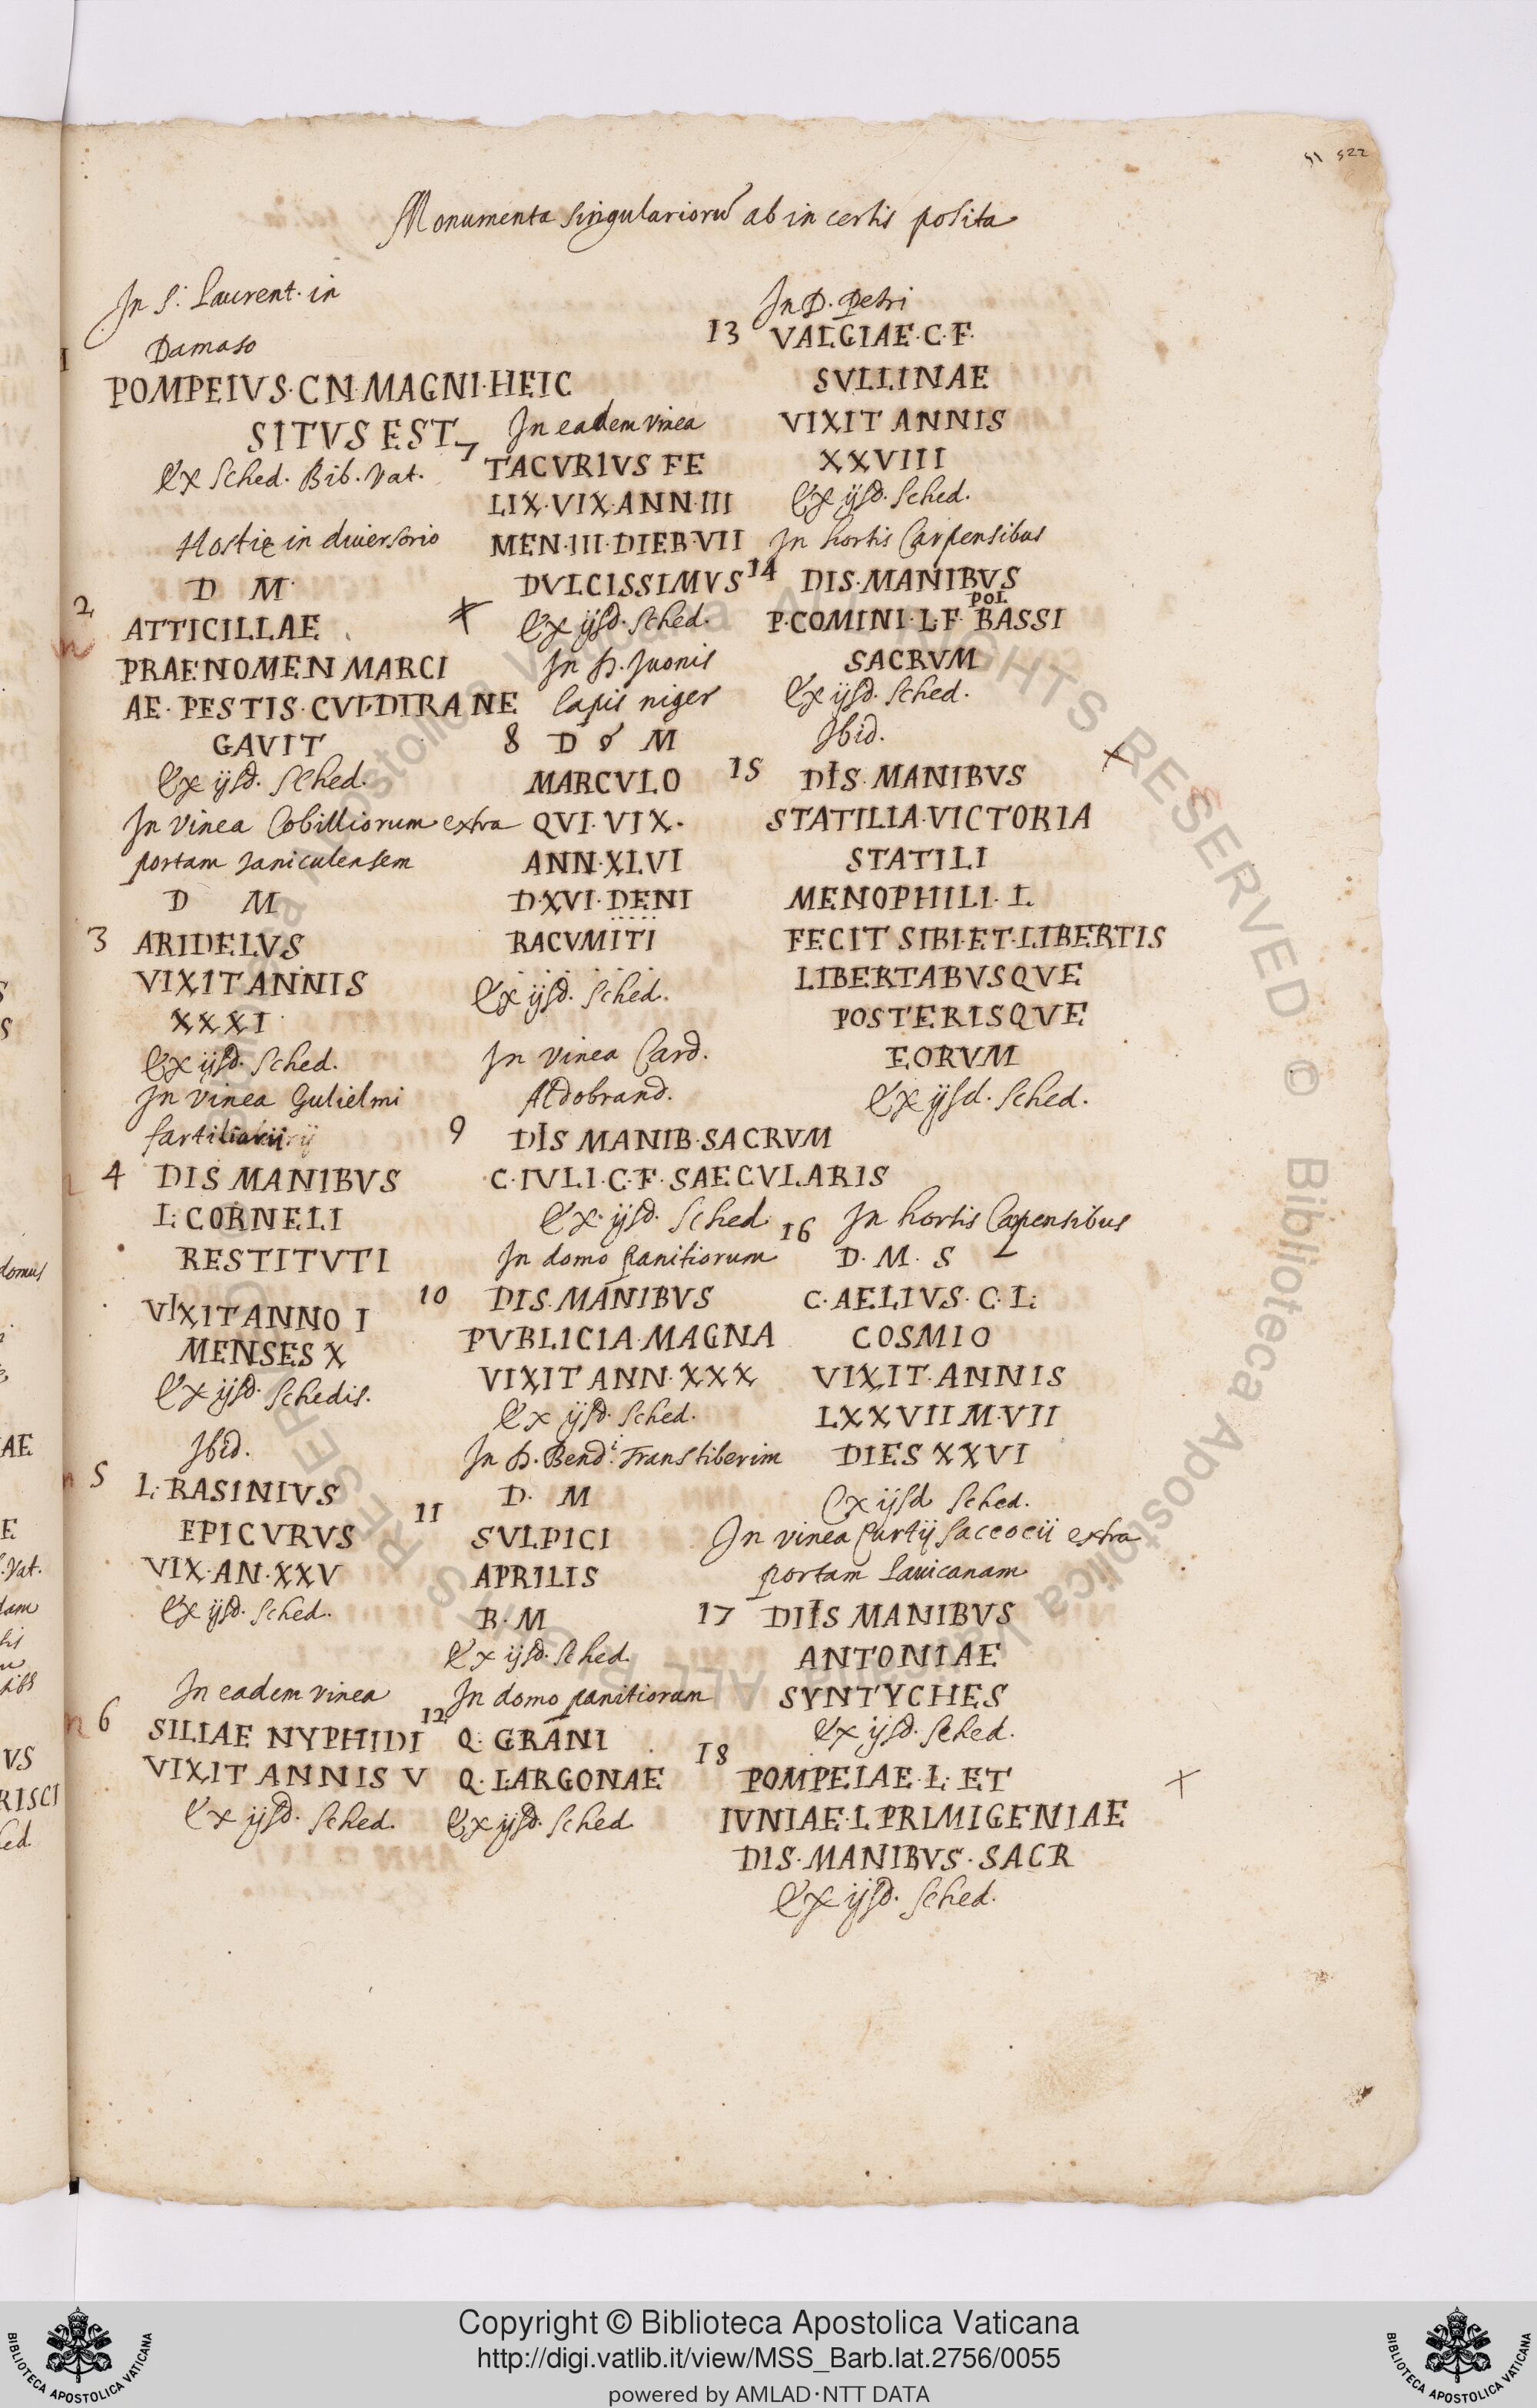 51 522
Monumenta singulariorũ ab incertis posita
In S. Laurent. in
Damaso
1
POMPEIVS·CN·MAGNI·HEIC
SITVS EST
Ex Sched. Bib. Vat.
Hostię in diuersorio
D M
2
ATTICILLAE
PRAENOMEN MARCI
AE·PESTIS·CVI·DIRA NE
GAVIT
Ex ijsd. Sched.
In vinea Cobilliorum extra
portam Janiculensem
D M
3 ARIDELVS
VIXIT ANNIS
XXXI
Ex ijsd. Sched.
In vinea Gulielmi
4 DIS MANIBVS
L: CORNELI
RESTITVTI
VIXIT ANNO I
MENSES X
Ex ijsd. Schedis.
Ibid.
5 L: RASINIVS
EPICVRVS
VIX·AN·XXV
Ex ijsd. Sched.
In eadem vinea
6 SILIAE NYPHIDI
VIXIT ANNIS V
Ex ijsd. Sched.
7 In eadem vinea
TACVRIVS FE
LIX·VIX·ANN·III
MEN·III·DIEB·VII
DVLCISSIMVS
Ex ijsd. Sched.
In D. Iuonis
lapis niger
8 D M
MARCVLO
QVI·VIX·
ANN·XLVI
D·XVI·DENI
RACVMITI
Ex ijsd. Sched.
In vinea Card.
Aldobrand.
9 DIS MANIB·SACRVM
C·IVLI·C·F·SAECVLARIS
Ex ijsd. Sched
In domo panitiorum
10 DIS·MANIBVS
PVBLICIA·MAGNA
VIXIT ANN·XXX
Ex ijsd. Sched.
In D. Bendi. Transtiberim
D· M
11
SVLPICI
APRILIS
B·M
Ex ijsd. Sched.
In domo panitiorum
12 Q·GRANI
Q·LARGONAE
Ex ijsd. Sched
In D. Petri
13 VALGIAE·C·F·
SVLLINAE
VIXIT ANNIS
XXVIII
Ex ijsd. Sched.
In hortis Carpensibus
14 DIS·MANIBVS
POL
P·COMINI·L·F·BASSI
SACRVM
Ex ijsd. Sched.
Ibid.
15 DIS·MANIBVS
STATILIA·VICTORIA
STATILI
MENOPHILI·L
FECIT SIBI·ET·LIBERTIS
LIBERTABVSQVE
POSTERISQVE
EORVM
Ex ijsd. Sched.
16 In hortis Capensibus
D·M·S
C·AELIVS·C·L:
COSMIO
VIXIT·ANNIS
LXXVII M·VII
DIES XXVI
Ex ijsd Sched.
In vinea Curtij Saccocii extra
portam Lauicanam
17 DIIS MANIBVS
ANTONIAE
SYNTYCHES
Ex ijsd. Sched.
18
POMPEIAE·L: ET
IVNIAE·L PRIMIGENIAE
DIS·MANIBVS·SACR
Ex ijsd. Sched.
Copyright © Biblioteca Apostolica Vaticana
http://digi.vatlib.it/view/MSS_Barb.lat.2756/0055
powered by AMLAD·NTT DATA
BIBLIOTECA APOSTOLICA VATICANA
BIBLIOTECA APOSTOLICA VATICANA